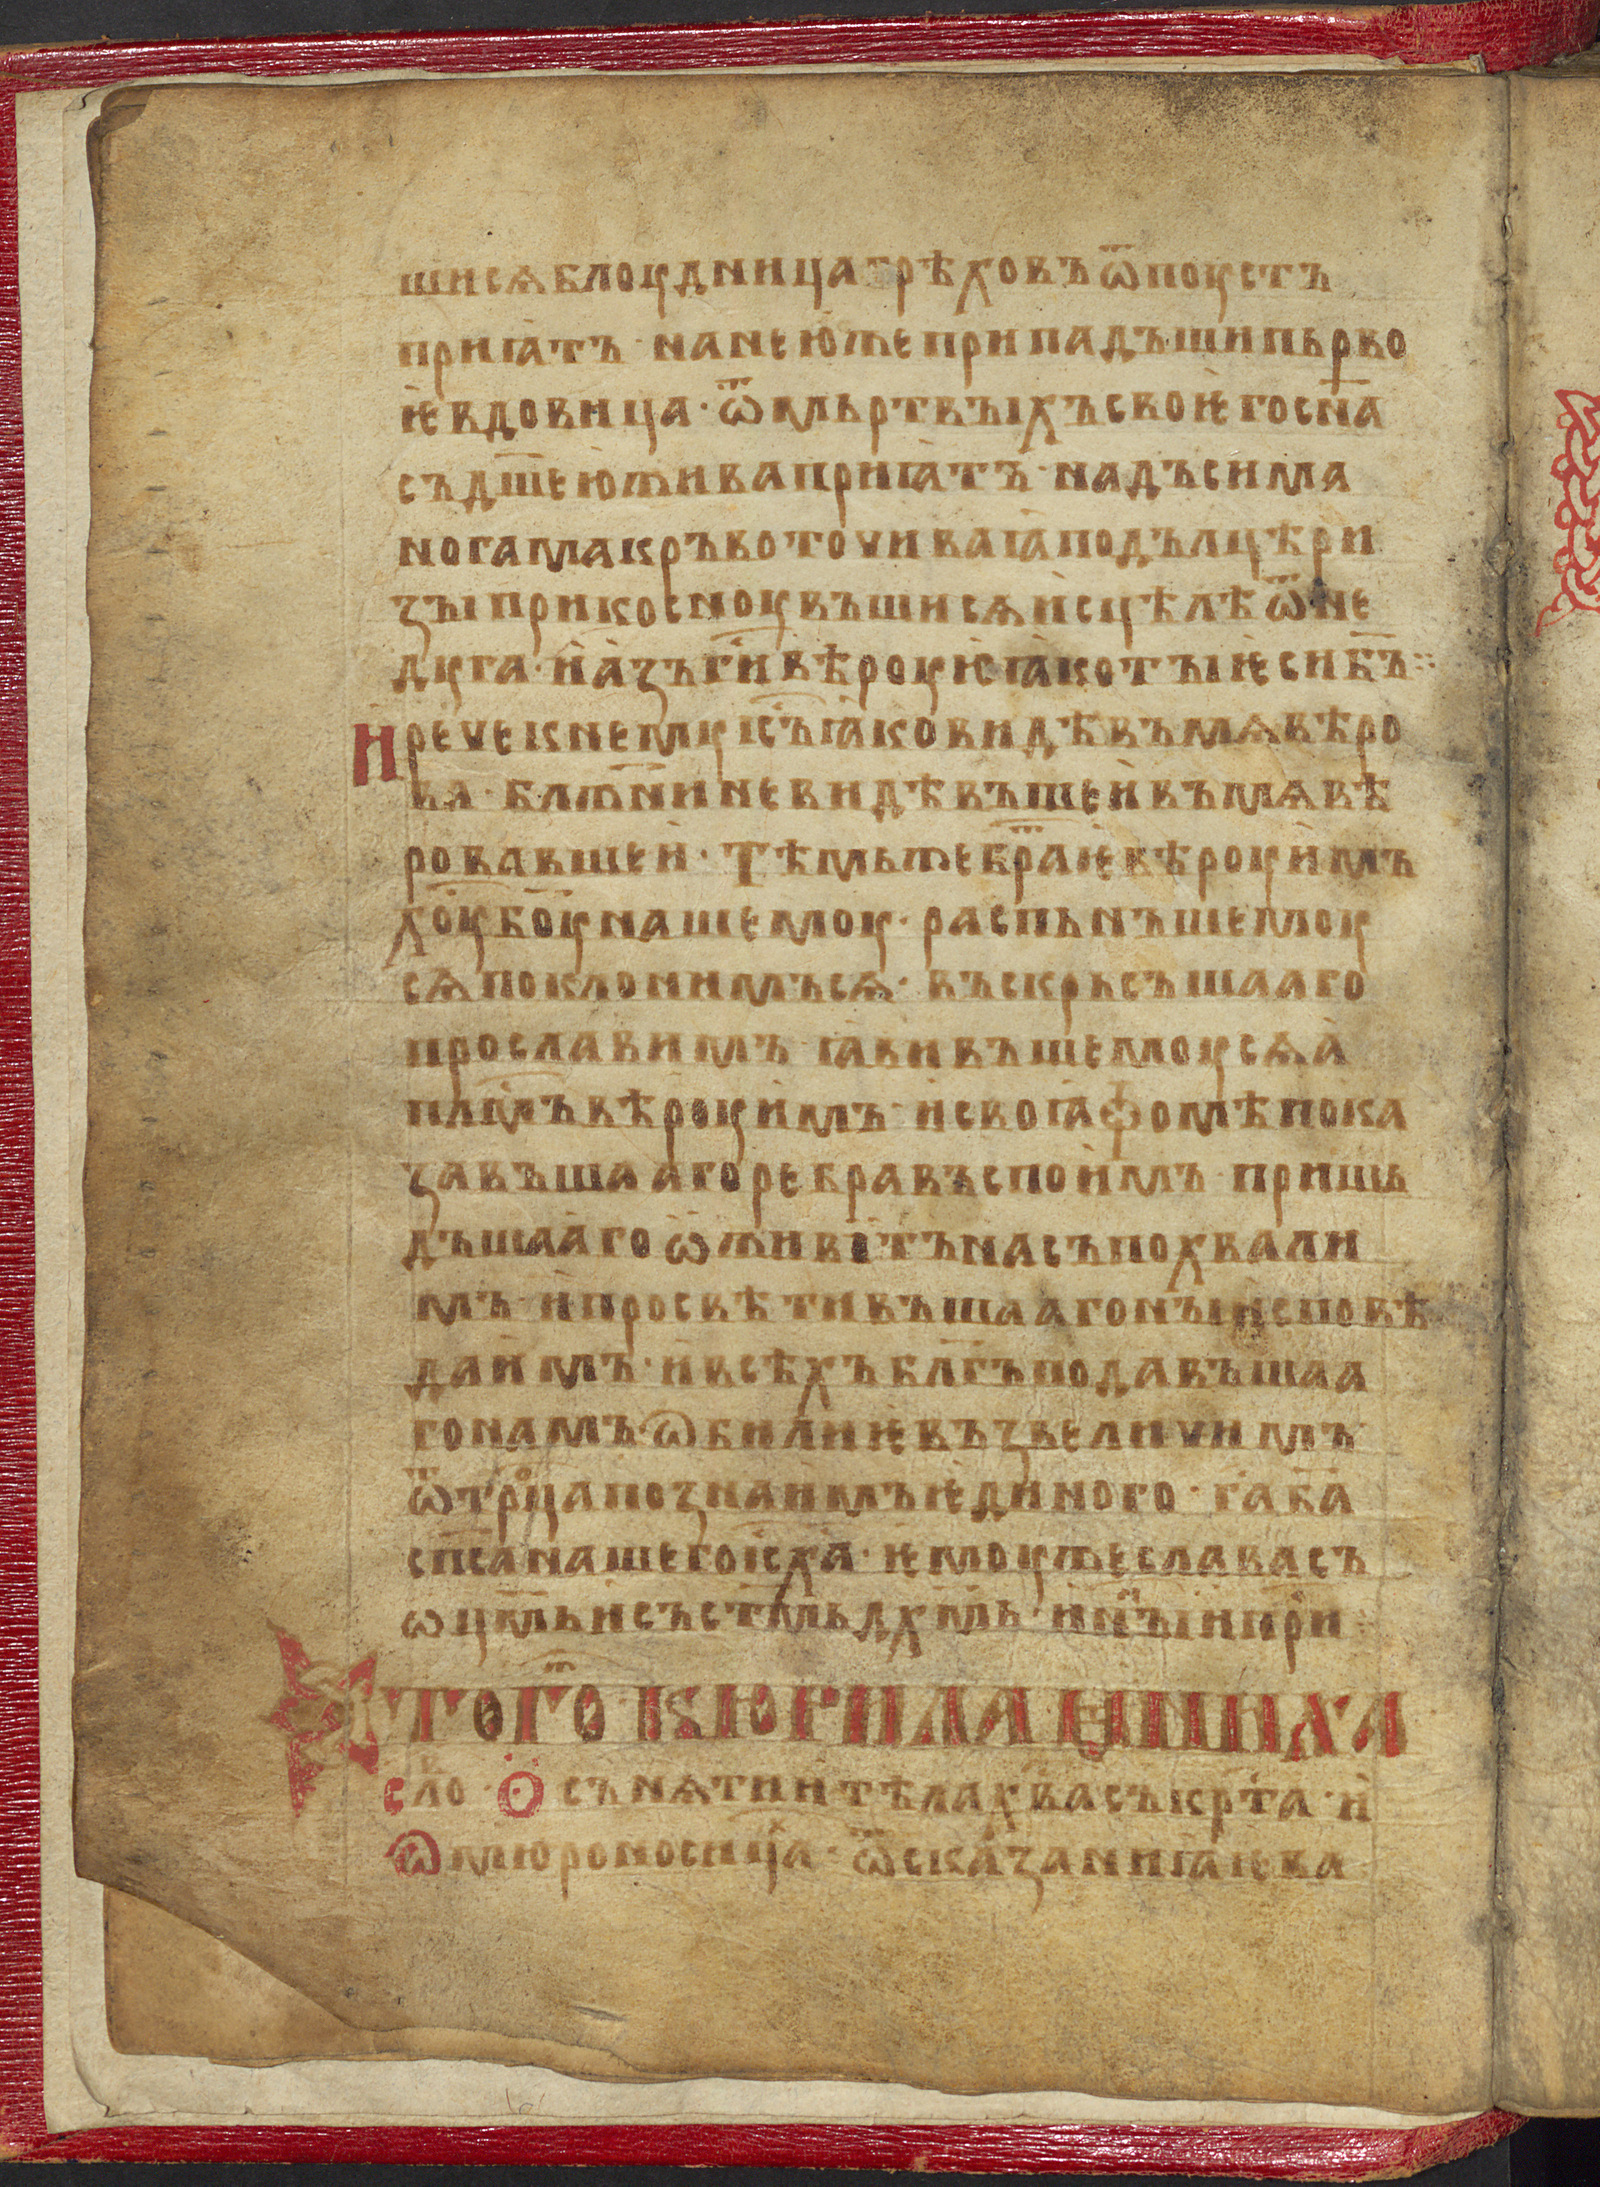 шисѧ блоудница грѣховъ ѿпоустъ
приꙗтъ · на нею же припадъши пьрво
ѥ вдовица · ѿ мьртвыхъ своѥго сн҃а
съ дш҃ею жива приꙗтъ · надъ сима
ногама кръвоточиваꙗ подълцѣ ри
зы прикоснувъшисѧ исцѣлѣ ѿ не
дуга · и азъ ги҃ вѣроую ꙗко ты ѥси б҃ъ ·:·
И рече к нему ис҃ъ ꙗко видѣвъ мѧ вѣро
ва · блж҃ни не видѣвъшеи въ мѧ вѣ
ровавшеи · тѣмь же бра҃ѥ вѣроуимъ
х҃оу б҃оу нашемоу · распьнъшемоу
сѧ поклонимъсѧ · въскрьсъшааго
прославимъ · ꙗвивъшемоусѧ а
пл҃мъ вѣроуимъ · и своꙗ фомѣ пока
завъшааго ребра въспоимъ · пришь
дъшааго ѡживитъ насъ похвали
мъ · и просвѣтивъшааго ны исповѣ
даимъ · и всѣхъ бл҃гъ подавъшаа
го намъ ѡбилиѥ възвеличимъ
ѿ тро҃ца познаимъ ѥдиного · г҃а б҃а
сп҃са нашего ис҃ х҃а · ѥмоу же слава съ
ѡц҃мь и съ ст҃мь дх҃мь · и н҃ы и при҃
Того҃ Кюрила мниха
сло҃ · О сънѧтии тѣла х҃ва съ крт҃а · и
ѡ мюроносица҃ · ѿ сказаниꙗ ѥва